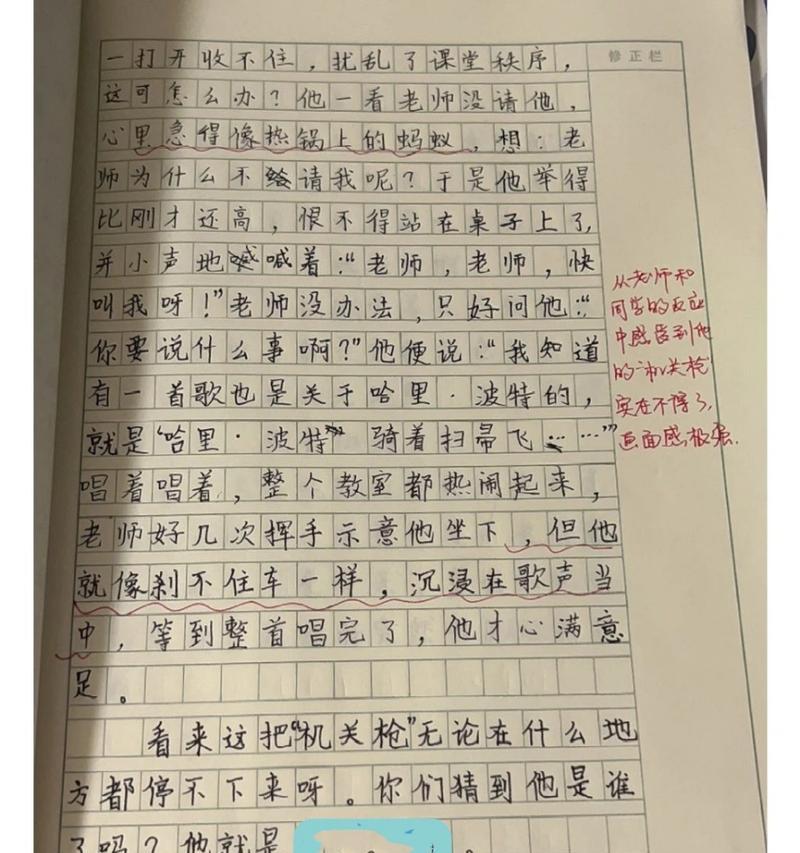 修正栏
一打开收不住，扰乱了课堂秩序，
这可怎么办？他一看老师没请他，
心里急得像热锅上的蚂蚁，想：老
师为什么不请我呢？于是他举得
比刚才还高，恨不得站在桌子上了，
并小声地喊着：“老师，老师，快
叫我呀！”老师没办法，只好问他：“
你要说什么事啊？”他便说：“我知道
有一首歌也是关于哈里·波特的，
就是‘哈里·波特骑着扫帚飞……’”
唱着唱着，整个教室都热闹起来，
老师好几次挥手示意他坐下，但他
就像刹不住车一样，沉浸在歌声当
中，等到整首唱完了，他才心满意
足。
看来这把“机关枪”无论在什么地
方都停不下来呀。你们猜到他是谁
了吗？他就是
从老师和
同学的反应
中感受到他
的“机关枪”
实在不得了，
画面感极强.